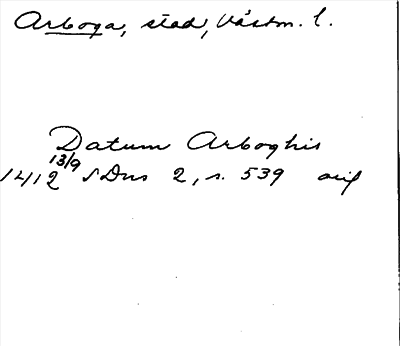 Arboga, stad, Västm. l.
Datum Arboghis
13/9
1412 SDns 2, s. 539 orig